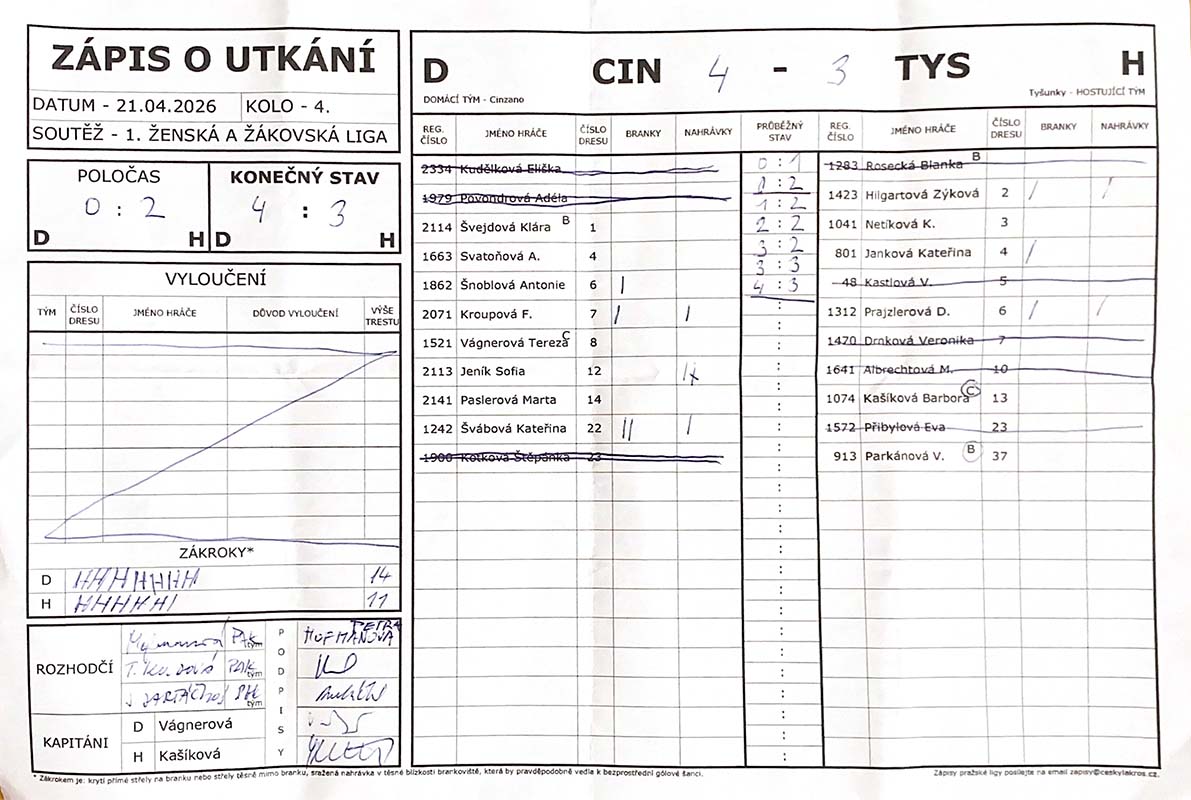 ZÁPIS O UTKÁNÍ
DATUM - 21.04.2026 KOLO - 4.
SOUTĚŽ - 1. ŽENSKÁ A ŽÁKOVSKÁ LIGA
POLOČAS
0 : 2
D H
KONEČNÝ STAV
4 : 3
D H
VYLOUČENÍ
TÝM ČÍSLO DRESU JMÉNO HRÁČE DŮVOD VYLOUČENÍ VÝŠE TRESTU
ZÁKROKY*
D 14
H 11
ROZHODČÍ
PAK tým
T. PAK tým
tým
PODPISY
PETRA
HOFMANOVÁ
KAPITÁNI
D Vágnerová
H Kašíková
D CIN 4 - 3 TYS H
DOMÁCÍ TÝM - Cinzano Tyšunky - HOSTUJÍCÍ TÝM
REG. ČÍSLO JMÉNO HRÁČE ČÍSLO DRESU BRANKY NAHRÁVKY PRŮBĚŽNÝ STAV REG. ČÍSLO JMÉNO HRÁČE ČÍSLO DRESU BRANKY NAHRÁVKY
2334 Kudělková Eliška 0 : 1 1283 Rosecká Blanka B
1979 Povondrová Adéla 0 : 2 1423 Hilgartová Zýková 2 / /
1 : 2
2114 Švejdová Klára B 1 2 : 2 1041 Netíková K. 3
1663 Svatoňová A. 4 3 : 2 801 Janková Kateřina 4 /
3 : 3
1862 Šnoblová Antonie 6 | 4 : 3 48 Kastlová V. 5
2071 Kroupová F. 7 | | : 1312 Prajzlerová D. 6 / /
1521 Vágnerová Tereza C 8 : 1470 Drnková Veronika 7
2113 Jeník Sofia 12 : 1641 Albrechtová M. 10
2141 Paslerová Marta 14 : 1074 Kašíková Barbora C 13
1242 Švábová Kateřina 22 || | : 1572 Přibylová Eva 23
1900 Kotková Štěpánka 23 : 913 Parkánová V. B 37
* Zákrokem je: krytí přímé střely na branku nebo střely těsně mimo branku, sražená nahrávka v těsné blízkosti brankoviště, která by pravděpodobně vedla k bezprostřední gólové šanci.
Zápisy pražské ligy posílejte na email zapisy@ceskylakros.cz.